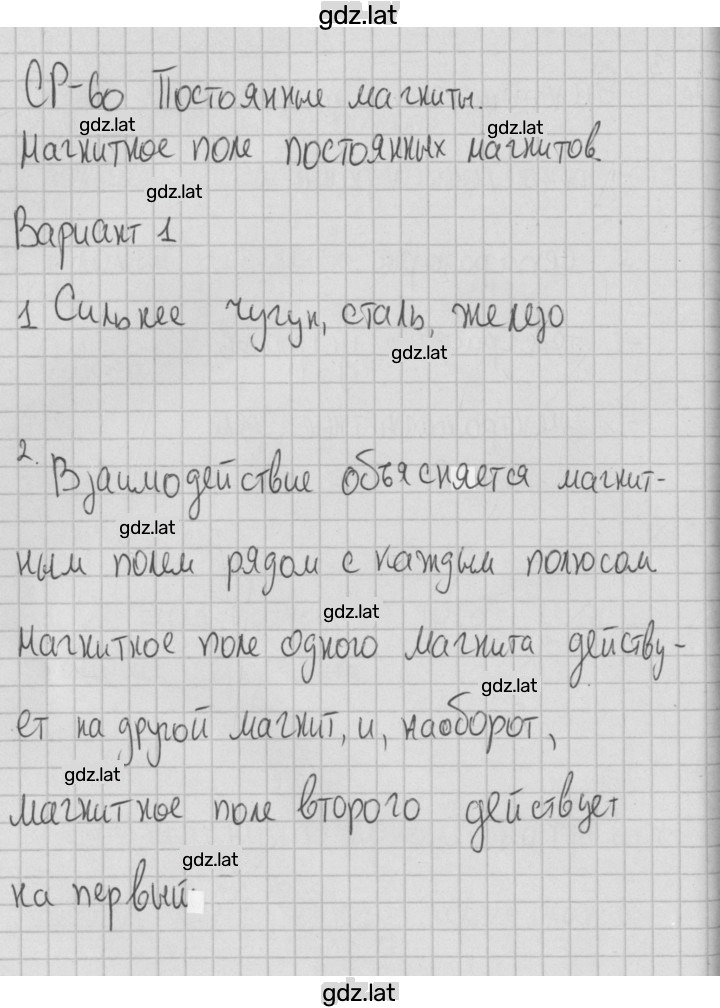 gdz.lat
СР-60 Постоянные магниты.
gdz.lat
gdz.lat
Магнитное поле постоянных магнитов.
gdz.lat
Вариант 1
1 Сильнее чугун, сталь, железо
gdz.lat
2. Взаимодействие объясняется магнит-
gdz.lat
ным полем рядом с каждым полюсом
gdz.lat
Магнитное поле одного магнита действу-
gdz.lat
ет на другой магнит, и, наоборот,
gdz.lat
магнитное поле второго действует
gdz.lat
на первый
gdz.lat